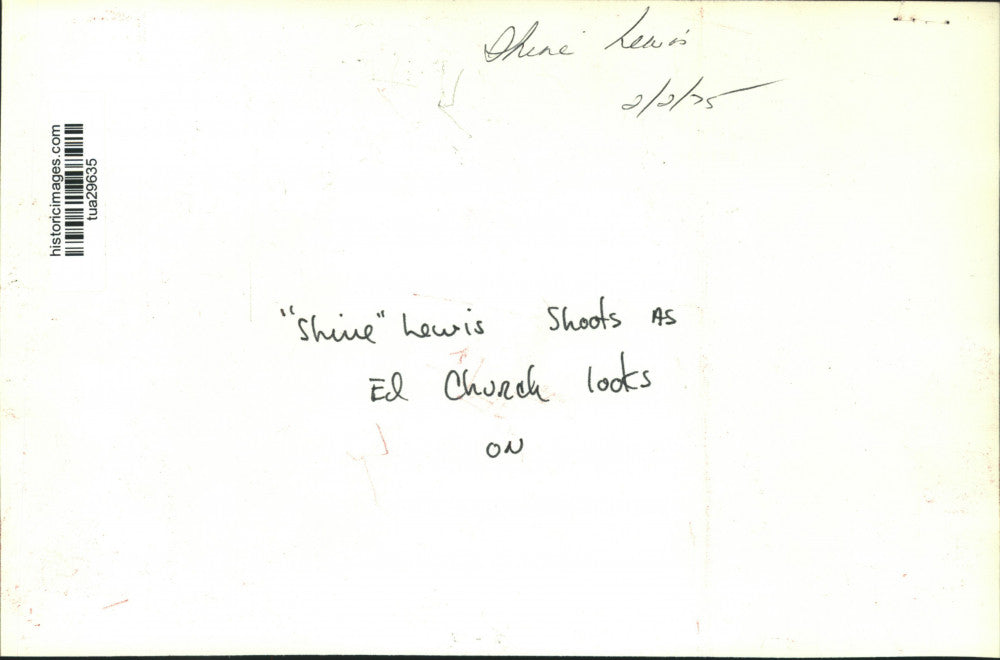 Shine Lewis
2/2/75
historicimages.com
tua29635
"Shine" Lewis Shoots As
Ed Church looks
ON